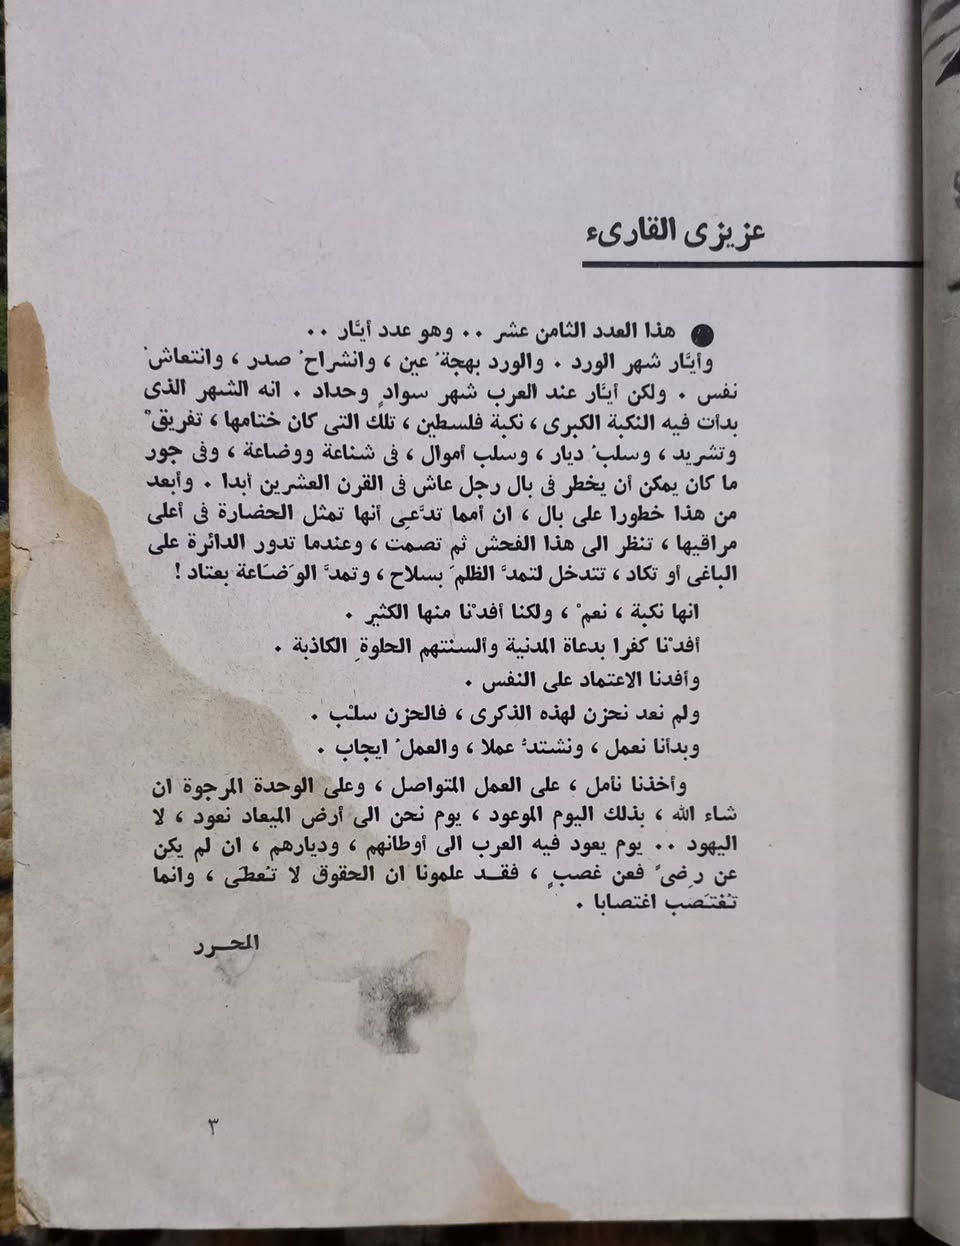 عزيزى القارىء
● هذا العدد الثامن عشر .. وهو عدد أيَّار ..
وأيَّار شهر الورد . والورد بهجةُ عين ، وانشراحُ صدر ، وانتعاشُ
نفس . ولكن أيَّار عند العرب شهر سوادٍ وحداد . انه الشهر الذى
بدأت فيه النكبة الكبرى ، نكبة فلسطين ، تلك التى كان ختامها ، تفريقٌ
وتشريد ، وسلبُ ديار ، وسلب أموال ، فى شناعة ووضاعة ، وفى جور
ما كان يمكن أن يخطر فى بال رجل عاش فى القرن العشرين أبدا . وأبعد
من هذا خطورا على بال ، ان أمما تدَّعِى أنها تمثل الحضارة فى أعلى
مراقيها ، تنظر الى هذا الفحش ثم تصمت ، وعندما تدور الدائرة على
الباغى أو تكاد ، تتدخل لتمدَّ الظلمَ بسلاح ، وتمدَّ الوَضَاعة بعتاد !
انها نكبة ، نعمْ ، ولكنا أفدْنا منها الكثير .
أفدْنا كفرا بدعاة المدنية وألسنتهم الحلوةِ الكاذبة .
وأفدنا الاعتماد على النفس .
ولم نعد نحزن لهذه الذكرى ، فالحزن سلْب .
وبدأنا نعمل ، ونشتدُّ عملا ، والعملُ ايجاب .
وأخذنا نأمل ، على العمل المتواصل ، وعلى الوحدة المرجوة ان
شاء الله ، بذلك اليوم الموعود ، يوم نحن الى أرض الميعاد نعود ، لا
اليهود .. يوم يعود فيه العرب الى أوطانهم ، وديارهم ، ان لم يكن
عن رِضىً فعن غصبٍ ، فقد علمونا ان الحقوق لا تُعطَى ، وانما
تُغتَصَب اغتصابا .
المحرر
٣